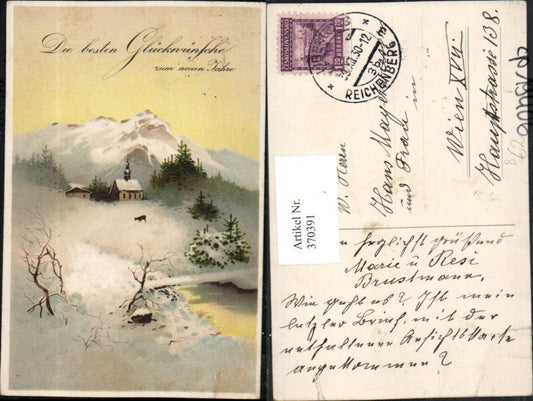 Die besten Glückwünsche
zum neuen Jahre
REICHENBERG
Artikel Nr.
370391
W. Herrn
Hans Mayer
und Frau in
Wien XVII.
Hauptstrasse 138.
herzlichst grüßend
Marie u Resi
Brustmann,
Wie geht es? Ist mein
letzter Brief mit der
enthaltenen Ansichtskarte
angekommen?